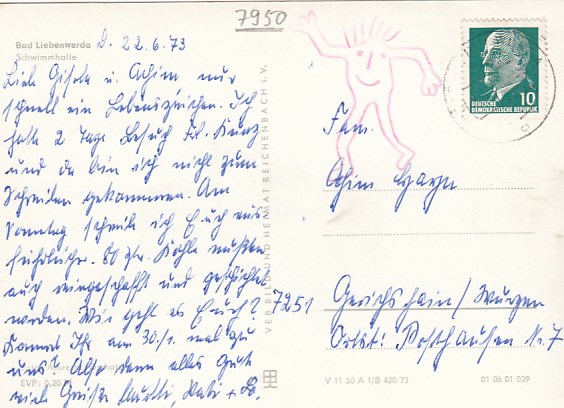 7950
Bad Liebenwerda d. 22.6.73
Schwimmhalle
Liebe Gisela u. Achim nur
schnell ein Lebenszeichen. Ich
hatte 2 Tage Besuch Frl. Kunz
und da bin ich nicht zum
Schreiben gekommen. Am
Sonntag schreib ich Euch aus-
führlicher. 80 Ztr. Kohle mußten
auch reingeschafft und geschichtet
werden. Wie geht es Euch?
Kommt Ihr am 30./1. mal zu
uns? Also denn alles Gute
viele Grüße Mutti, Vati +
EVP: 0,20
VEB BILD UND HEIMAT REICHENBACH i. V.
DEUTSCHE
DEMOKRATISCHE REPUBLIK
10
Fam.
Achim
7251 Gerichshain/Wurzen
Ortst: Posthausen Nr. 7
V 11 50 A 1/B 420/73
01 06 01 039